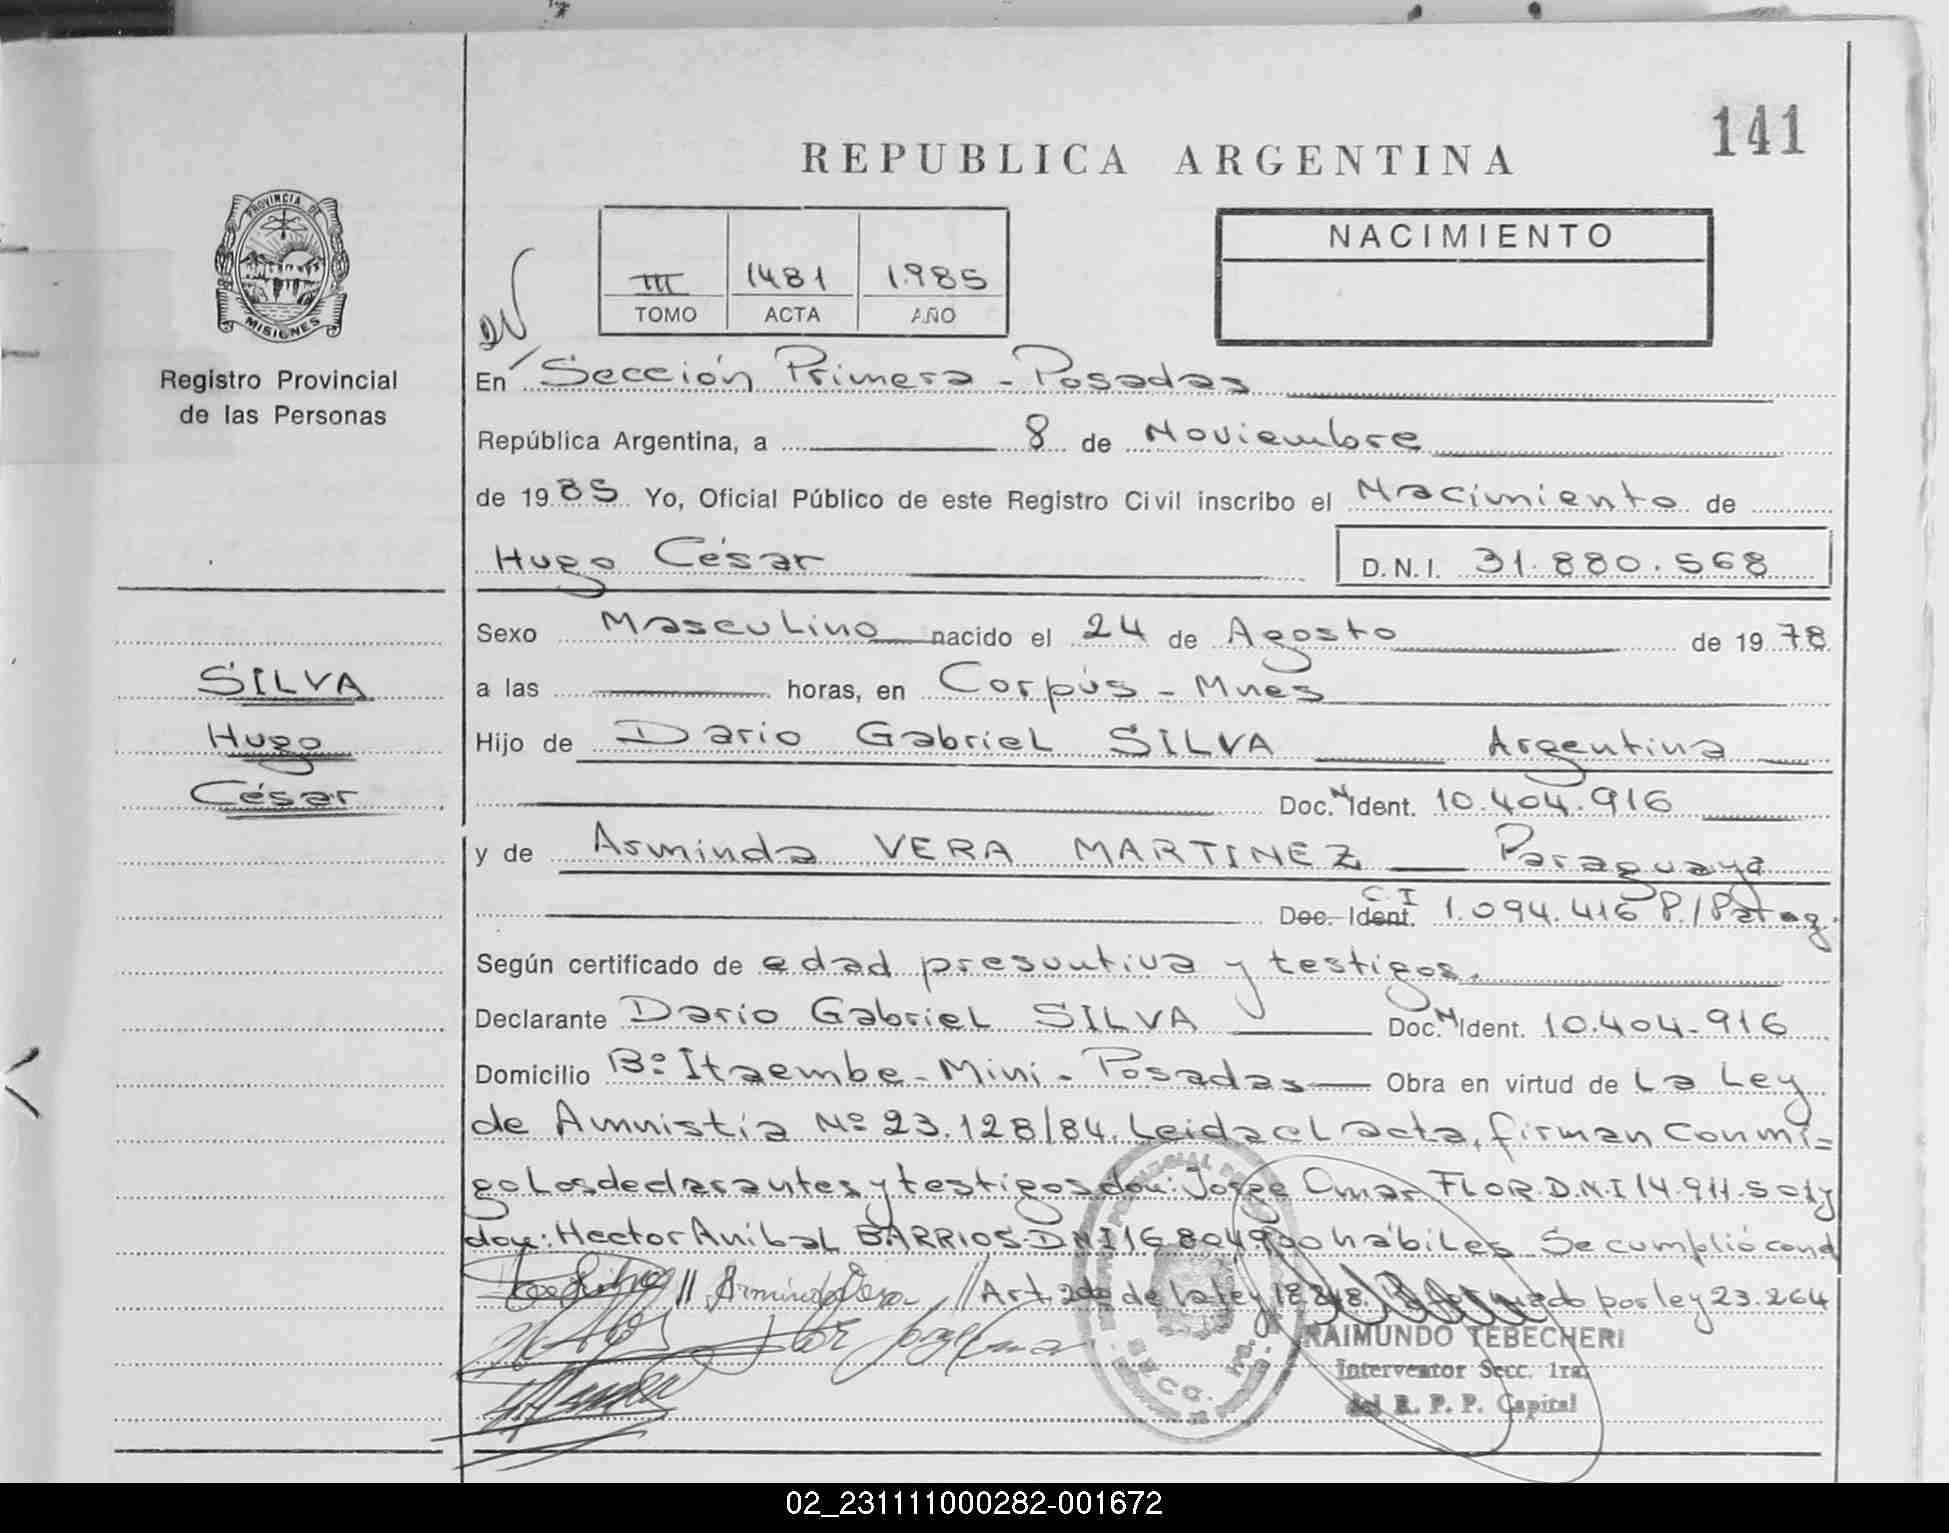 141
REPUBLICA ARGENTINA
PROVINCIA DE
MISIONES
Registro Provincial
de las Personas
III 1481 1.985
TOMO ACTA AÑO
NACIMIENTO
En Sección Primera - Posadas
República Argentina, a 8 de Noviembre
de 1985 Yo, Oficial Público de este Registro Civil inscribo el Nacimiento de
Hugo César D.N.I. 31.880.568
Sexo Masculino nacido el 24 de Agosto de 1978
SILVA
Hugo
César
a las horas, en Corpús - Mnes
Hijo de Dario Gabriel SILVA Argentina
Doc. N Ident. 10.404.916
y de Arminda VERA MARTINEZ Paraguaya
C.I
Doc. Ident. 1.094.416 P./Parag.
Según certificado de edad presuntiva y testigos.
Declarante Dario Gabriel SILVA Doc. N Ident. 10.404.916
Domicilio Bº Itaembe - Mini - Posadas Obra en virtud de La Ley
de Amnistía Nº 23.128/84. Leida el acta, firman conmi=
go los declarantes y testigos don: Jorge Omar FLOR. D.N.I 14.911.501 y
don: Hector Anibal BARRIOS. DNI 16.804.900 hábiles. Se cumplió con el
Arminda Vera // Art. 2do de la ley 18.248. Reformado por ley 23.264
Flor Jorge Omar
RAIMUNDO TEBECHERI
Interventor Secc. 1ra.
del R. P. P. Capital
02_231111000282-001672